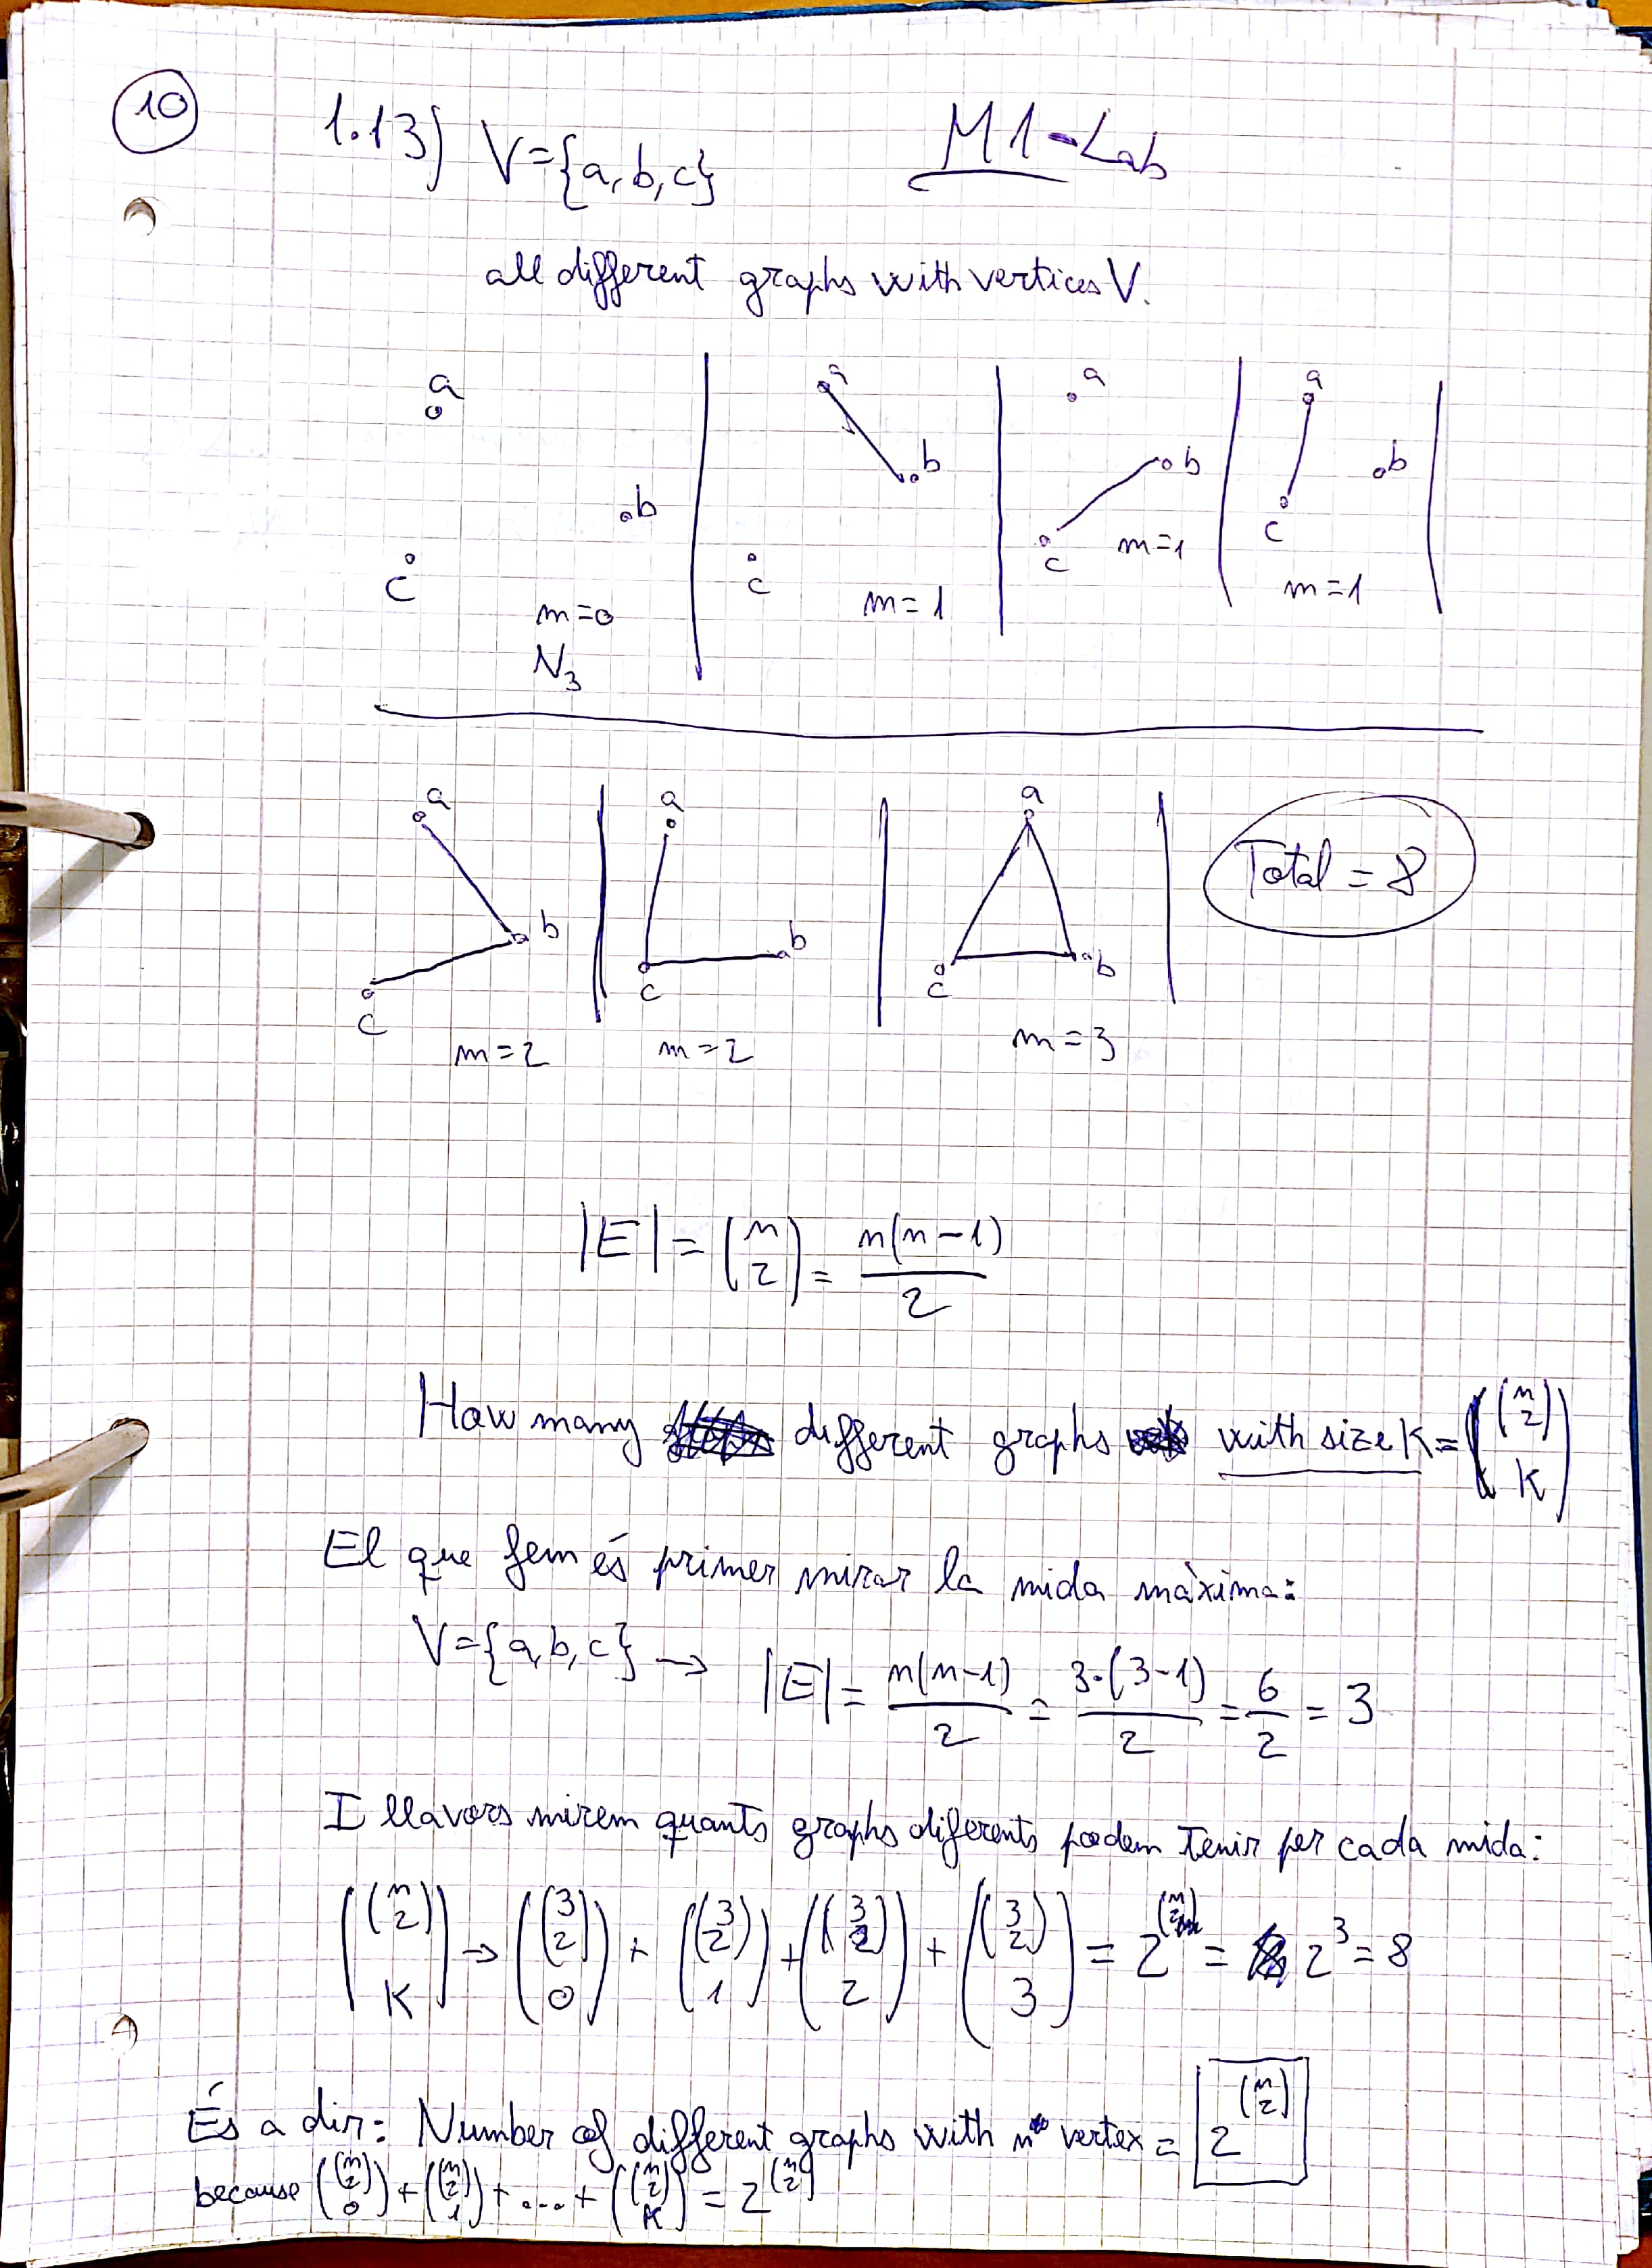 10
1.13) V={a, b, c}
M1-Lab
all different graphs with vertices V.
a
b
c
m=0
N₃
a
b
c
m=1
a
b
c
m=1
a
b
c
m=1
a
b
c
m=2
a
b
c
m=2
a
b
c
m=3
Total = 8
|E| = (n 2) = n(n-1)/2
How many different graphs with size K = ((n 2) K)
El que fem és primer mirar la mida màxima:
V={a,b,c} → |E| = n(n-1)/2 = 3·(3-1)/2 = 6/2 = 3
I llavors mirem quants graphs diferents podem tenir per cada mida:
((n 2) K) → ((3 2) 0) + ((3 2) 1) + ((3 2) 2) + ((3 2) 3) = 2^(n 2) = 2³ = 8
És a dir: Number of different graphs with n vertex = 2^(n 2)
because ((n 2) 0) + ((n 2) 1) + .... + ((n 2) K) = 2^(n 2)